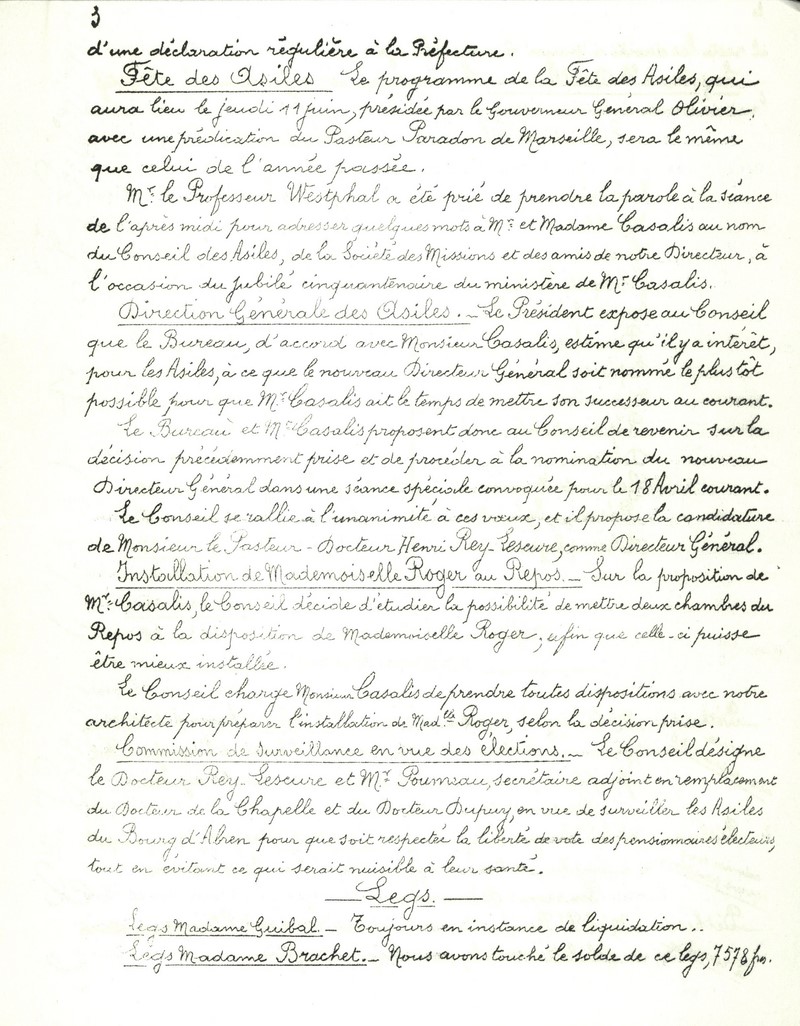 3
d'une déclaration régulière à la Préfecture.
Fête des Asiles Le programme de la Fête des Asiles, qui
aura lieu le jeudi 11 juin, présidée par le Gouverneur Général Olivier,
avec une prédication du Pasteur Paradon de Marseille, sera le même
que celui de l'année passée.
Mr. le Professeur Westphal a été prié de prendre la parole à la séance
de l'après midi pour adresser quelques mots à Mr. et Madame Casalis au nom
du Conseil des Asiles, de la Société des Missions et des amis de notre Directeur, à
l'occasion du jubilé cinquantenaire du ministère de Mr. Casalis.
Direction Générale des Asiles. _ Le Président expose au Conseil
que le Bureau, d'accord avec Monsieur Casalis, estime qu'il y a intérêt,
pour les Asiles, à ce que le nouveau Directeur Général soit nommé le plus tôt
possible pour que Mr. Casalis ait le temps de mettre son successeur au courant.
Le Bureau et Mr. Casalis proposent donc au Conseil de revenir sur la
décision précédemment prise et de procéder à la nomination du nouveau
Directeur Général dans une séance spéciale convoquée pour le 18 Avril courant.
Le Conseil se rallie à l'unanimité à ces vœux, et il propose la candidature
de Monsieur le Pasteur - Docteur Henri Rey Lescure, comme Directeur Général.
Installation de Mademoiselle Roger au Repos. _ Sur la proposition de
Mr. Casalis, le Conseil décide d'étudier la possibilité de mettre deux chambres du
Repos à la disposition de Mademoiselle Roger, afin que celle-ci puisse
être mieux installée.
Le Conseil charge Monsieur Casalis de prendre toutes dispositions avec notre
architecte pour préparer l'installation de Mad.elle Roger, selon la décision prise.
Commission de Surveillance en vue des élections. _ Le Conseil désigne
le Docteur Rey-Lescure et Mr. Poumeau, secrétaire adjoint en remplacement
du Docteur de la Chapelle et du Docteur Dupuy, en vue de surveiller les Asiles
du Bourg d'Abren pour que soit respectée la liberté de vote des pensionnaires électeurs,
tout en évitant ce qui serait nuisible à leur santé.
Legs.
Legs Madame Guibal. _ Toujours en instance de liquidation..
Legs Madame Brachet. _ Nous avons touché le solde de ce legs, 7578 frs.